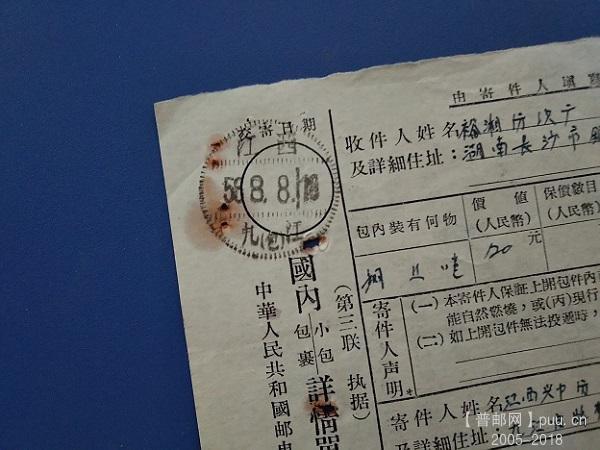 由寄件人填寫
交寄日期
江西
58.8.8.18
九江
(包)
收件人姓名
及詳細住址：湖南長沙市
包內裝有何物
價值
(人民幣)
保價數目
(人民幣)
20元
寄件人声明*
(一)本寄件人保証上開包件內
能自然燃燒，或(丙)現行
(二)如上開包件無法投遞時，
寄件人姓名江西
及詳細住址：九江
中華人民共和國邮电
國內
小包
包裹
詳情單
(第三联 执据)
【普邮网】puu.cn
2005-2018